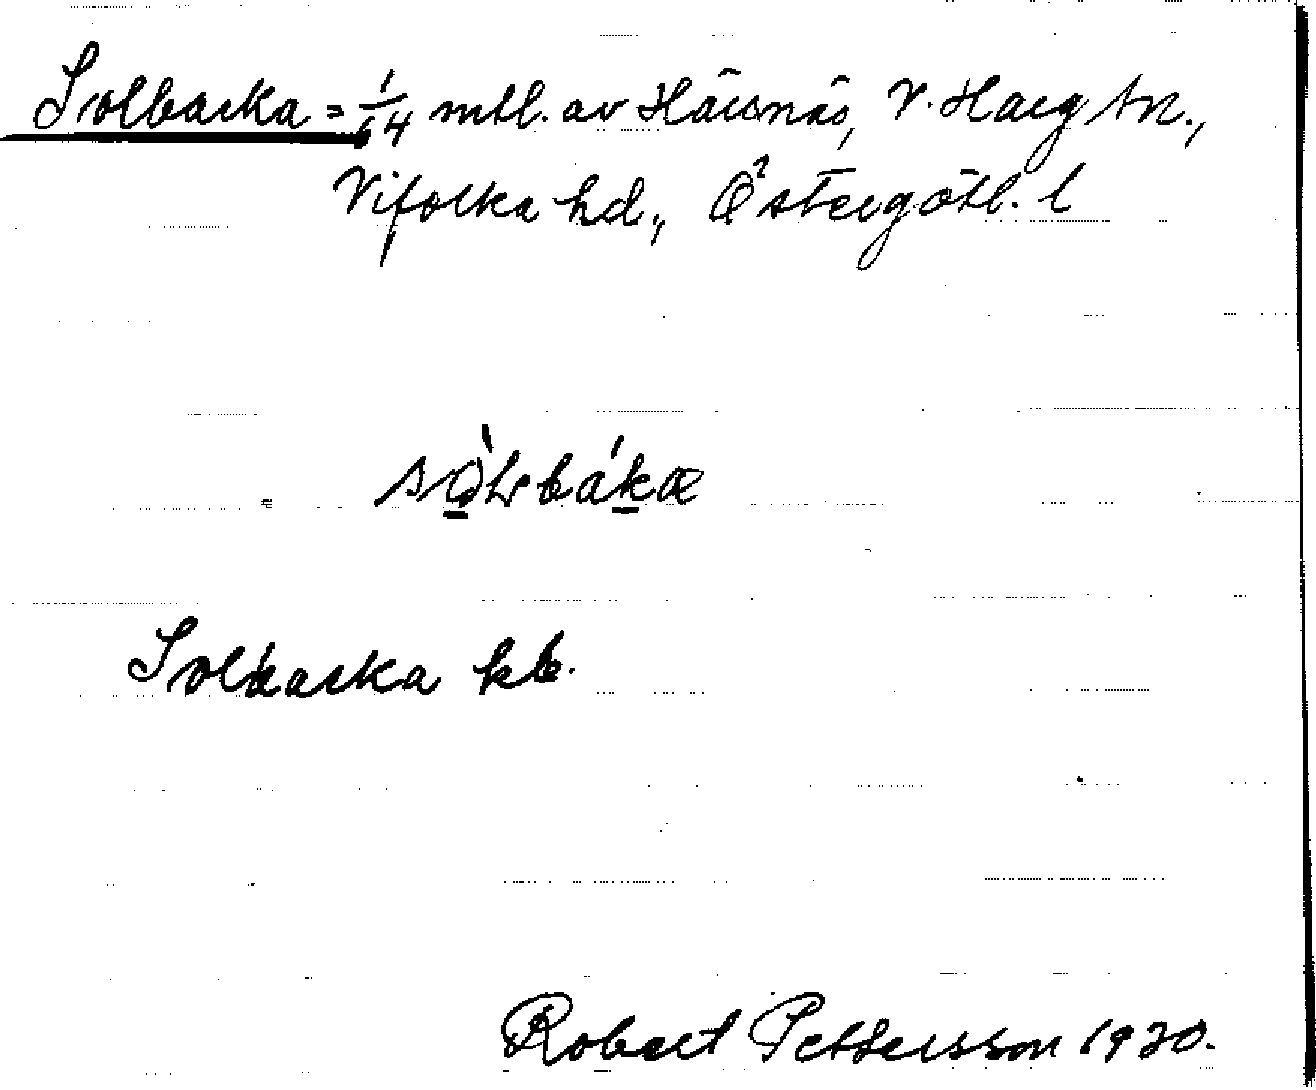 Solbacka = 1/64 mtl. av Härsnäs, V. Harg sn.,
Vifolka hd., Östergötl. l
Solbacka kb.
Robert Pettersson 1930.